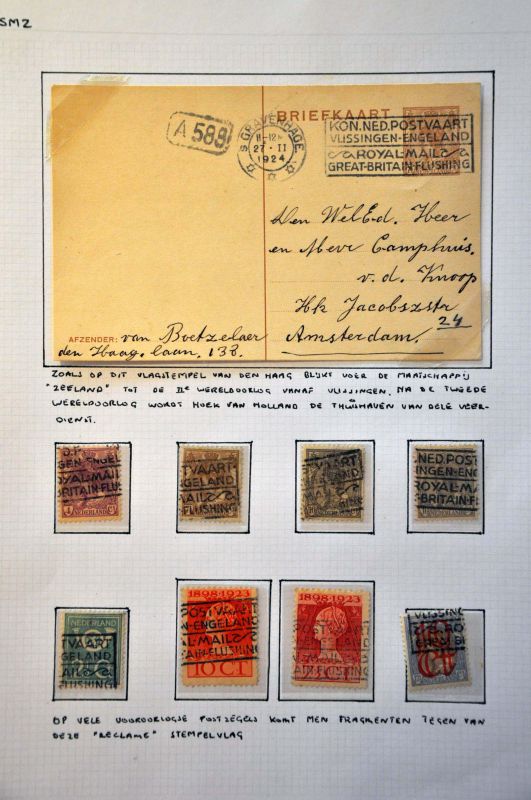 SMZ
BRIEFKAART
A 589
S GRAVENHAGE
27·II
1924
KON.NED.POSTVAART
VLISSINGEN-ENGELAND
ROYAL-MAIL
GREAT-BRITAIN-FLUSHING
Den WelEd. Heer
en Mevr Camphuis.
v.d. Knoop
Hk Jacobszstr
24
Amsterdam.
AFZENDER: van Boetzelaer
den Haag. laan, 138.
ZOALS OP DIT VLAGSTEMPEL VAN DEN HAAG BLIJKT VOER DE MAATSCHAPPIJ
"ZEELAND" TOT DE IIe WERELDOORLOG VANAF VLISSINGEN. NA DE TWEEDE
WERELDOORLOG WORDT HOEK VAN HOLLAND DE THUISHAVEN VAN DEZE VEER-
DIENST.
NGEN-ENGEL
ROYAL-MA
BRITAIN-FLUS
NEDERLAND
TVAART
GELAND
AIL
FLUSHING
VAART
.NED.POST
INGEN-ENG
ROYAL-M
-BRITAIN-
TVAART
GELAND
AIL
FLUSHING
1898·1923
POSTVAAR
N-ENGELA
L-MAIL
AIN-FLUS
10 CT
1898·1923
POSTVAART
VLISSING
RO
OP VELE VOOROORLOGSE POSTZEGELS KOMT MEN FRAGMENTEN TEGEN VAN
DEZE "RECLAME" STEMPELVLAG